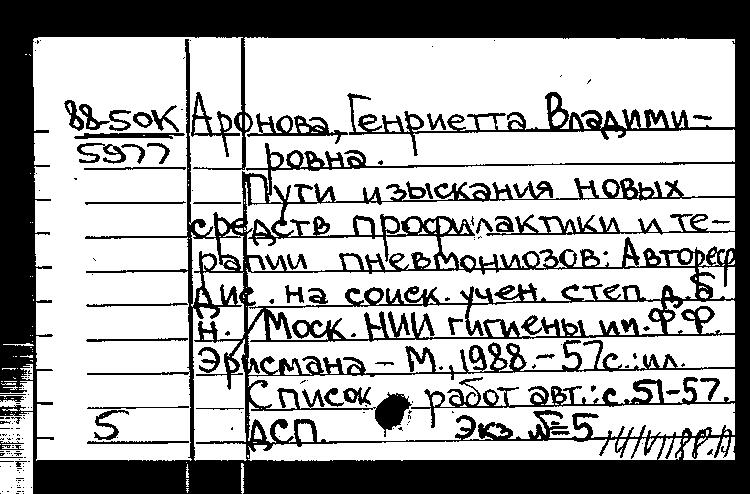 88-50К Аронова, Генриетта Владими-
5977 ровна.
Пути изыскания новых
средств профилактики и те-
рапии пневмониозов: Автореф
дис. на соиск. учен. степ. д. б.
н. / Моск. НИИ гигиены им. Ф.Ф.
Эрисмана. - М., 1988. - 57с.: ил.
Список работ авт.: с. 51-57.
5 ДСП. Экз. №=5